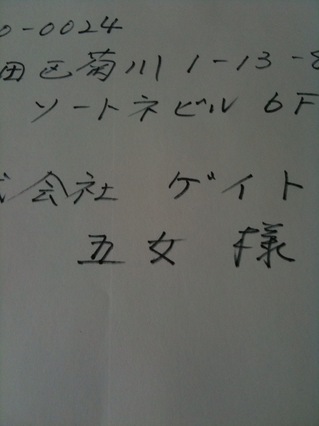 0-0024
田区菊川 1-13-8
ソートネビル 6F
式会社 ゲイト
五女 様